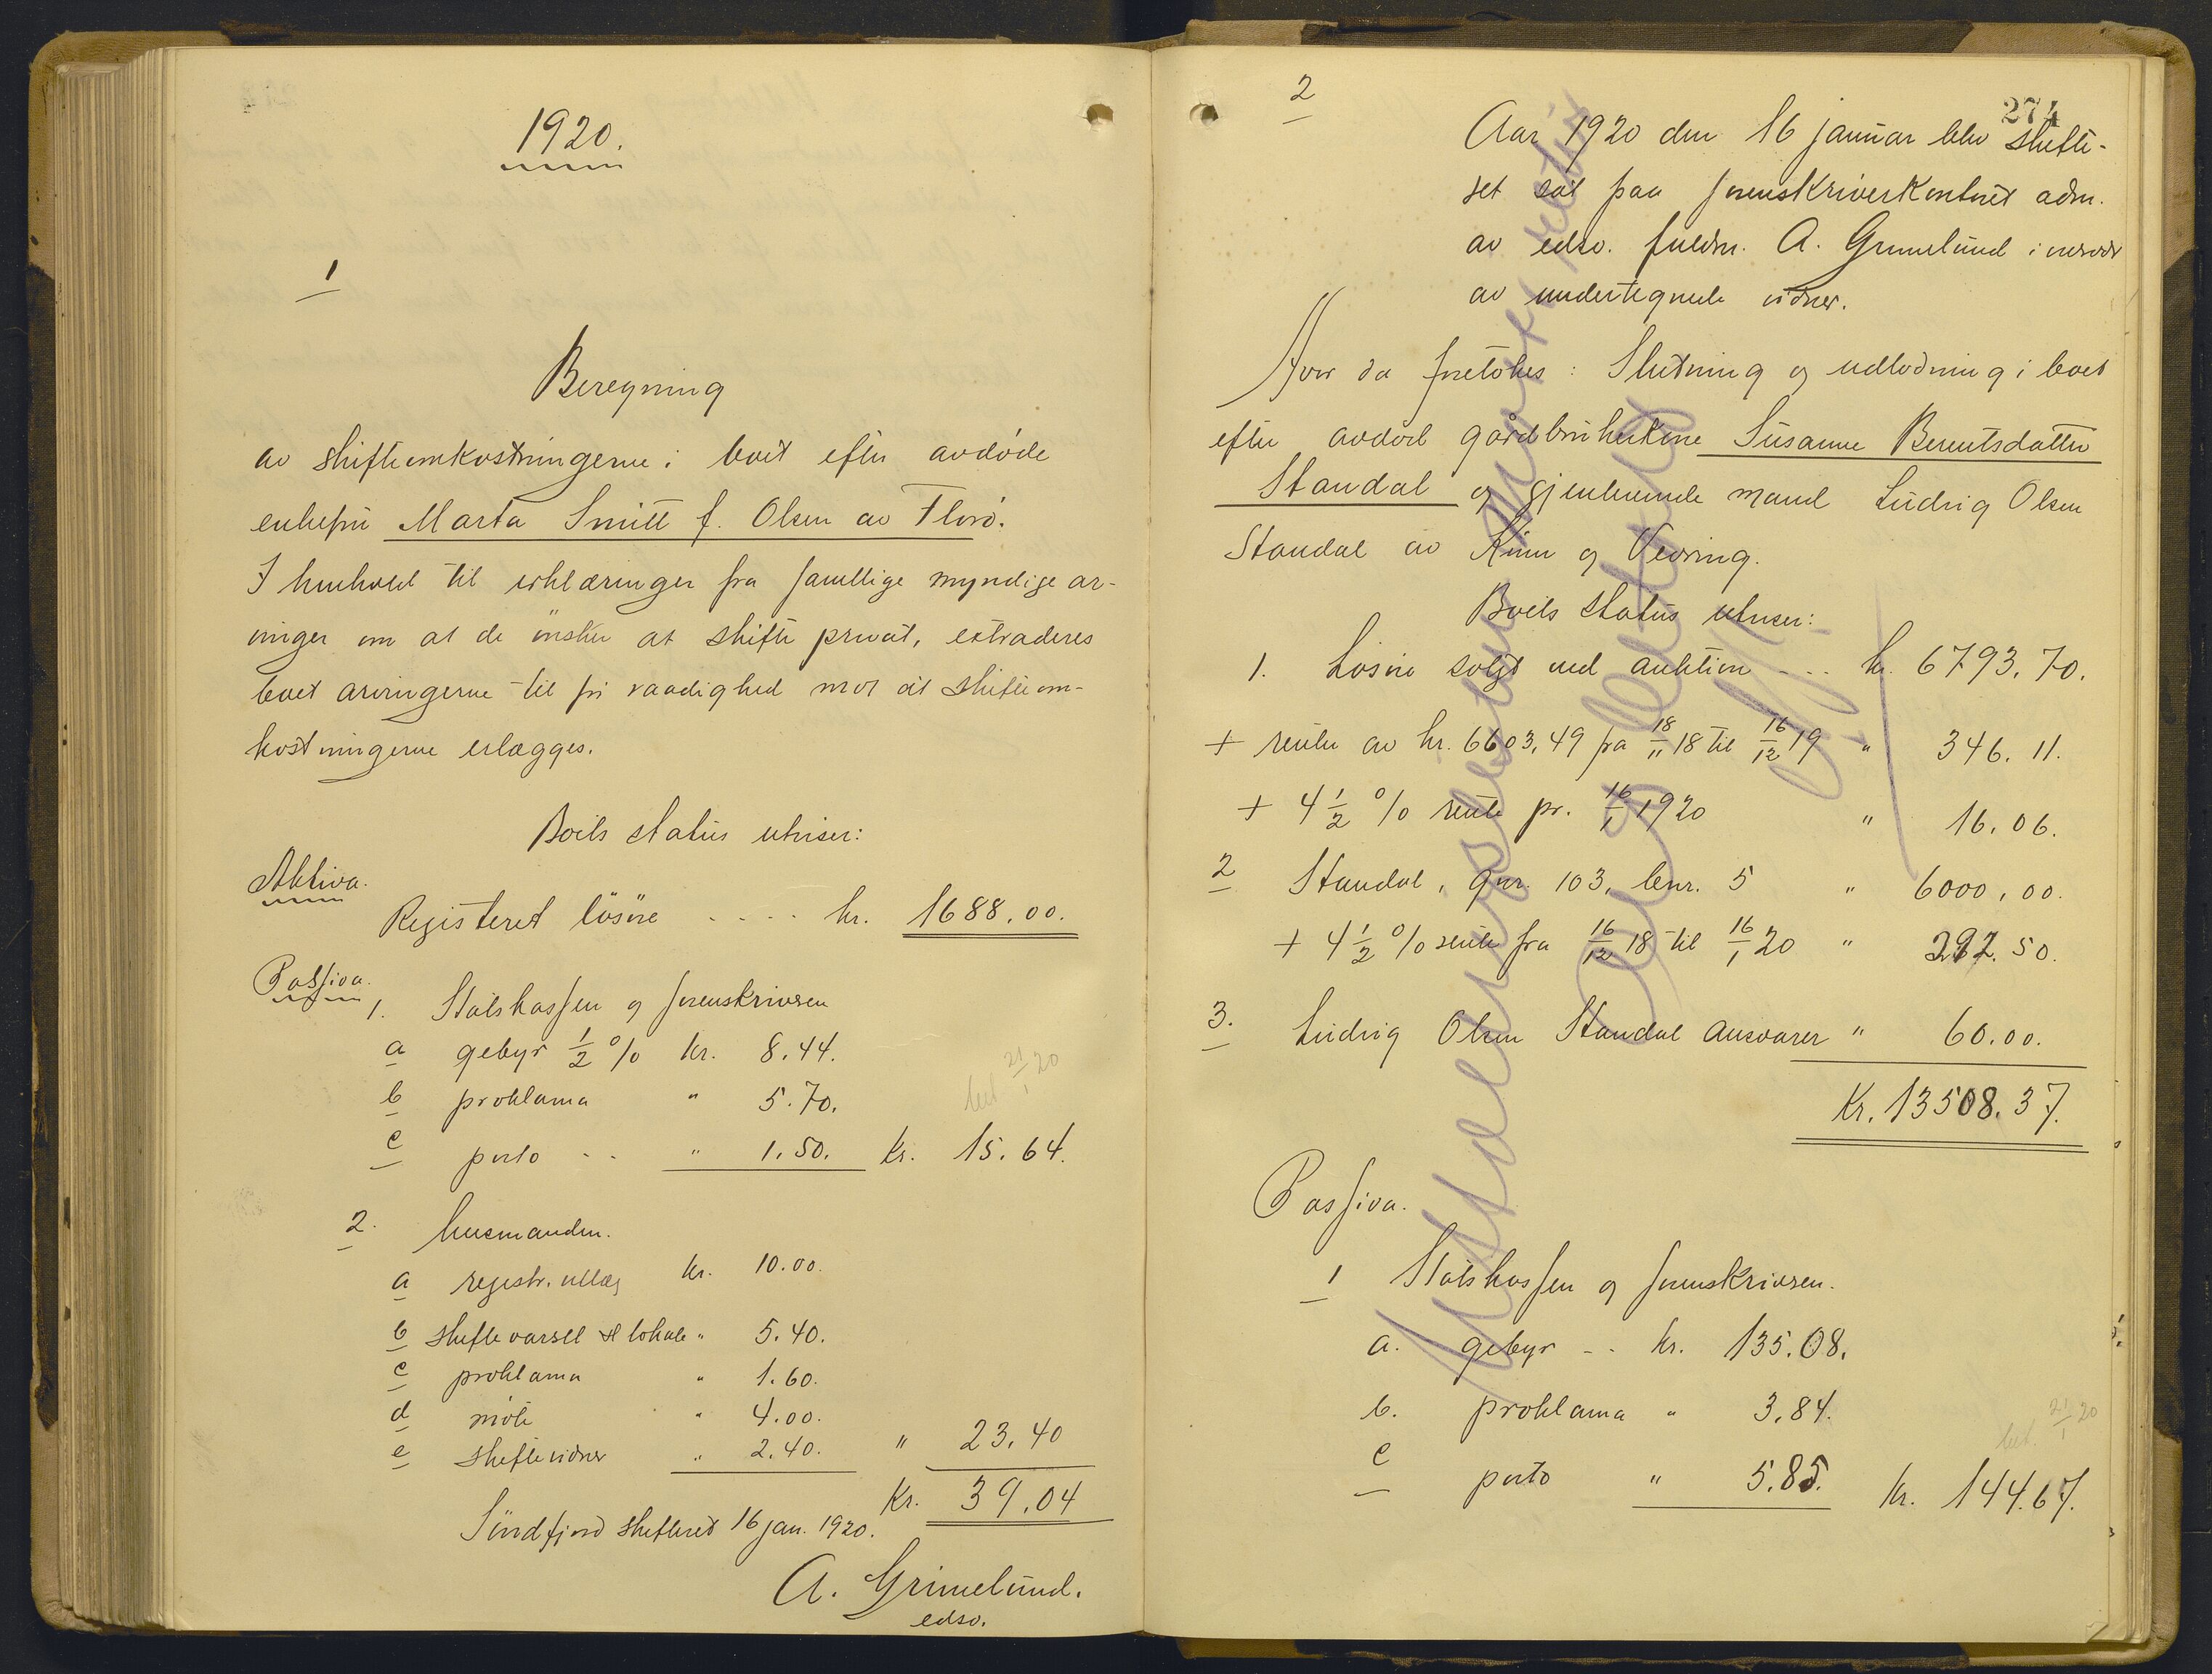 1920.
1
Beregning
av skifteomkostningerne i boet efter avdøde
enkefru Marta Smitt f. Olsen av Florø.
I henhold til erklæringer fra samtlige myndige ar-
vinger om at de ønsker at skifte privat, extraderes
boet arvingerne til fri raadighed mot at skifteom-
kostningerne erlægges.
Boets status utviser:
Aktiva.
Registeret løsøre - - - - kr. 1688.00.
Passiva.
1. Statskassen og sorenskriveren
a gebyr 1/2 % kr. 8.44.
b proklama " 5.70.
bet 21/1 20
c porto - - " 1.50. Kr. 15.64.
2. lensmanden.
a registr. utlæg kr. 10.00.
b skiftevarsel & lokale " 5.40.
c proklama " 1.60.
d møte " 4.00.
e skiftevidner " 2.40. " 23.40
Kr. 39.04
Søndfjord skifteret 16 jan. 1920.
A. Grimelund.
edsv.
2
274
Aar 1920 den 16 januar blev skifte-
ret sat paa sorenskriverkontoret adm.
av edsv. fuldm. A. Grimelund i nærvær
av undertegnede vidner.
Hvor da foretokes: Slutning og udlodning i boet
efter avdød gårdbrukerkone Susanne Berentsdatter
Standal og gjenlevende mand Ludvig Olsen
Standal av Kinn og Vevring.
Boets status utviser:
1. Løsøre solgt ved auktion - - - kr. 6793.70.
+ renter av kr. 6603,49 fra 18/11 18 til 16/12 19 " 346.11.
+ 4 1/2 % rente pr. 16/1 1920 " 16.06.
2 Standal, gnr. 103, bnr. 5 " 6000,00.
+ 4 1/2 % rente fra 16/12 18 til 16/1 20 " 292.50.
3. Ludvig Olsen Standal ansvarer " 60.00.
Kr. 13508.37.
Passiva.
1 Statskassen og sorenskriveren.
a. gebyr - - kr. 135.08.
b. proklama " 3,84.
bet. 21/1 20
c porto " 5.85. kr. 144.67.